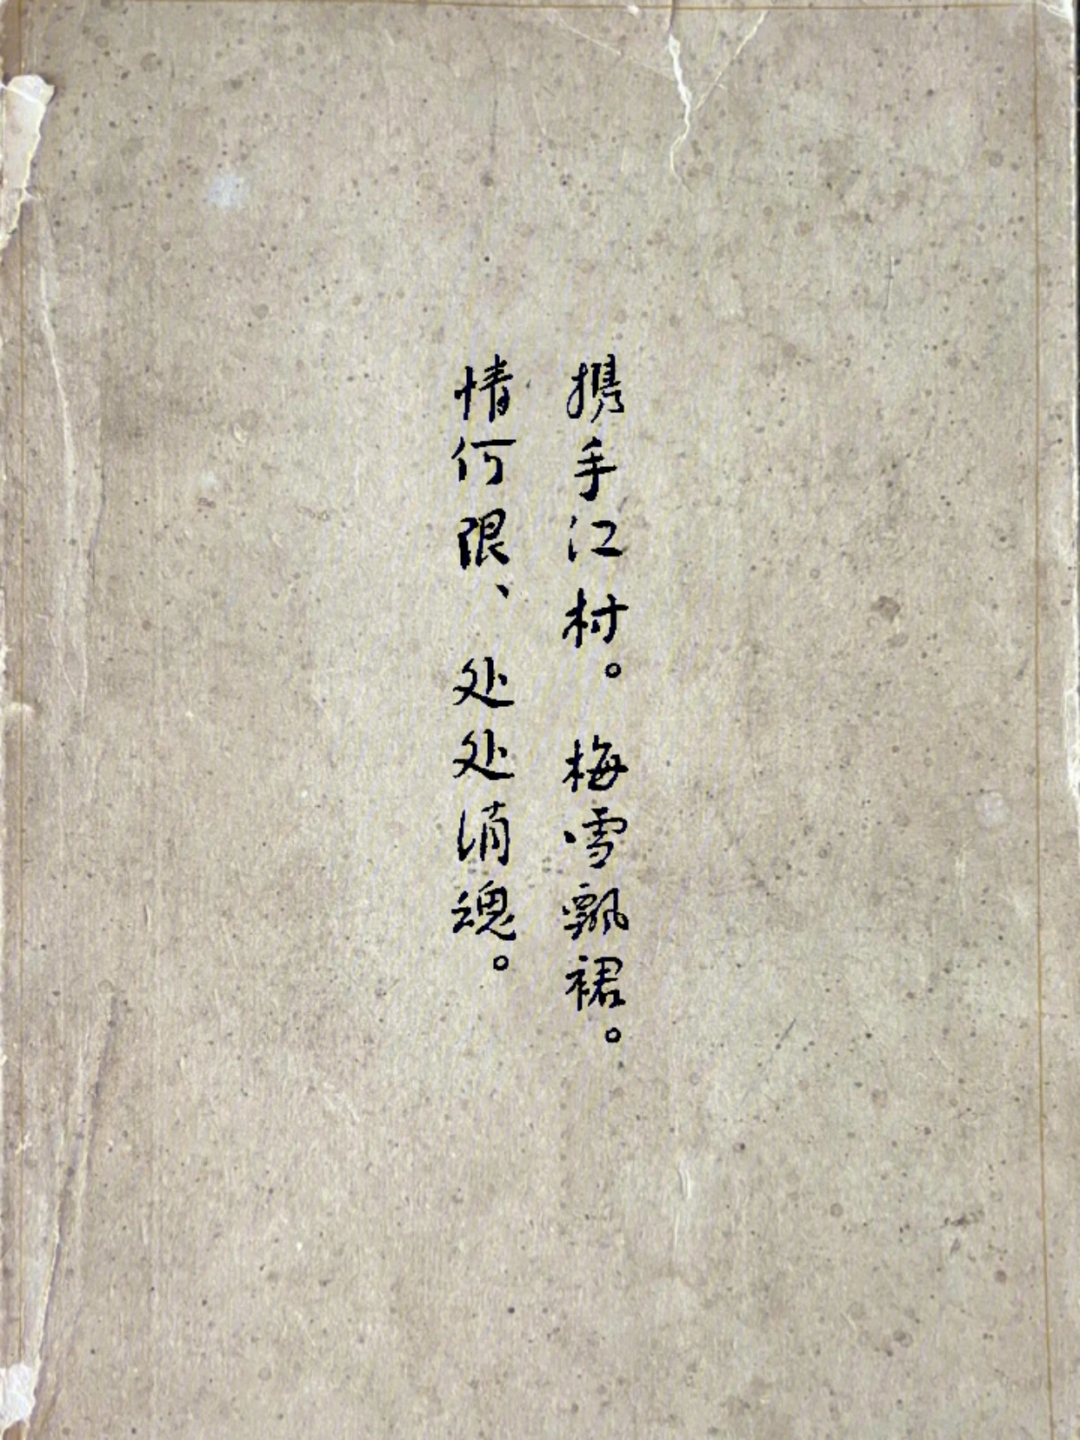 携手江村。梅雪飘裙。
情何限、处处消魂。